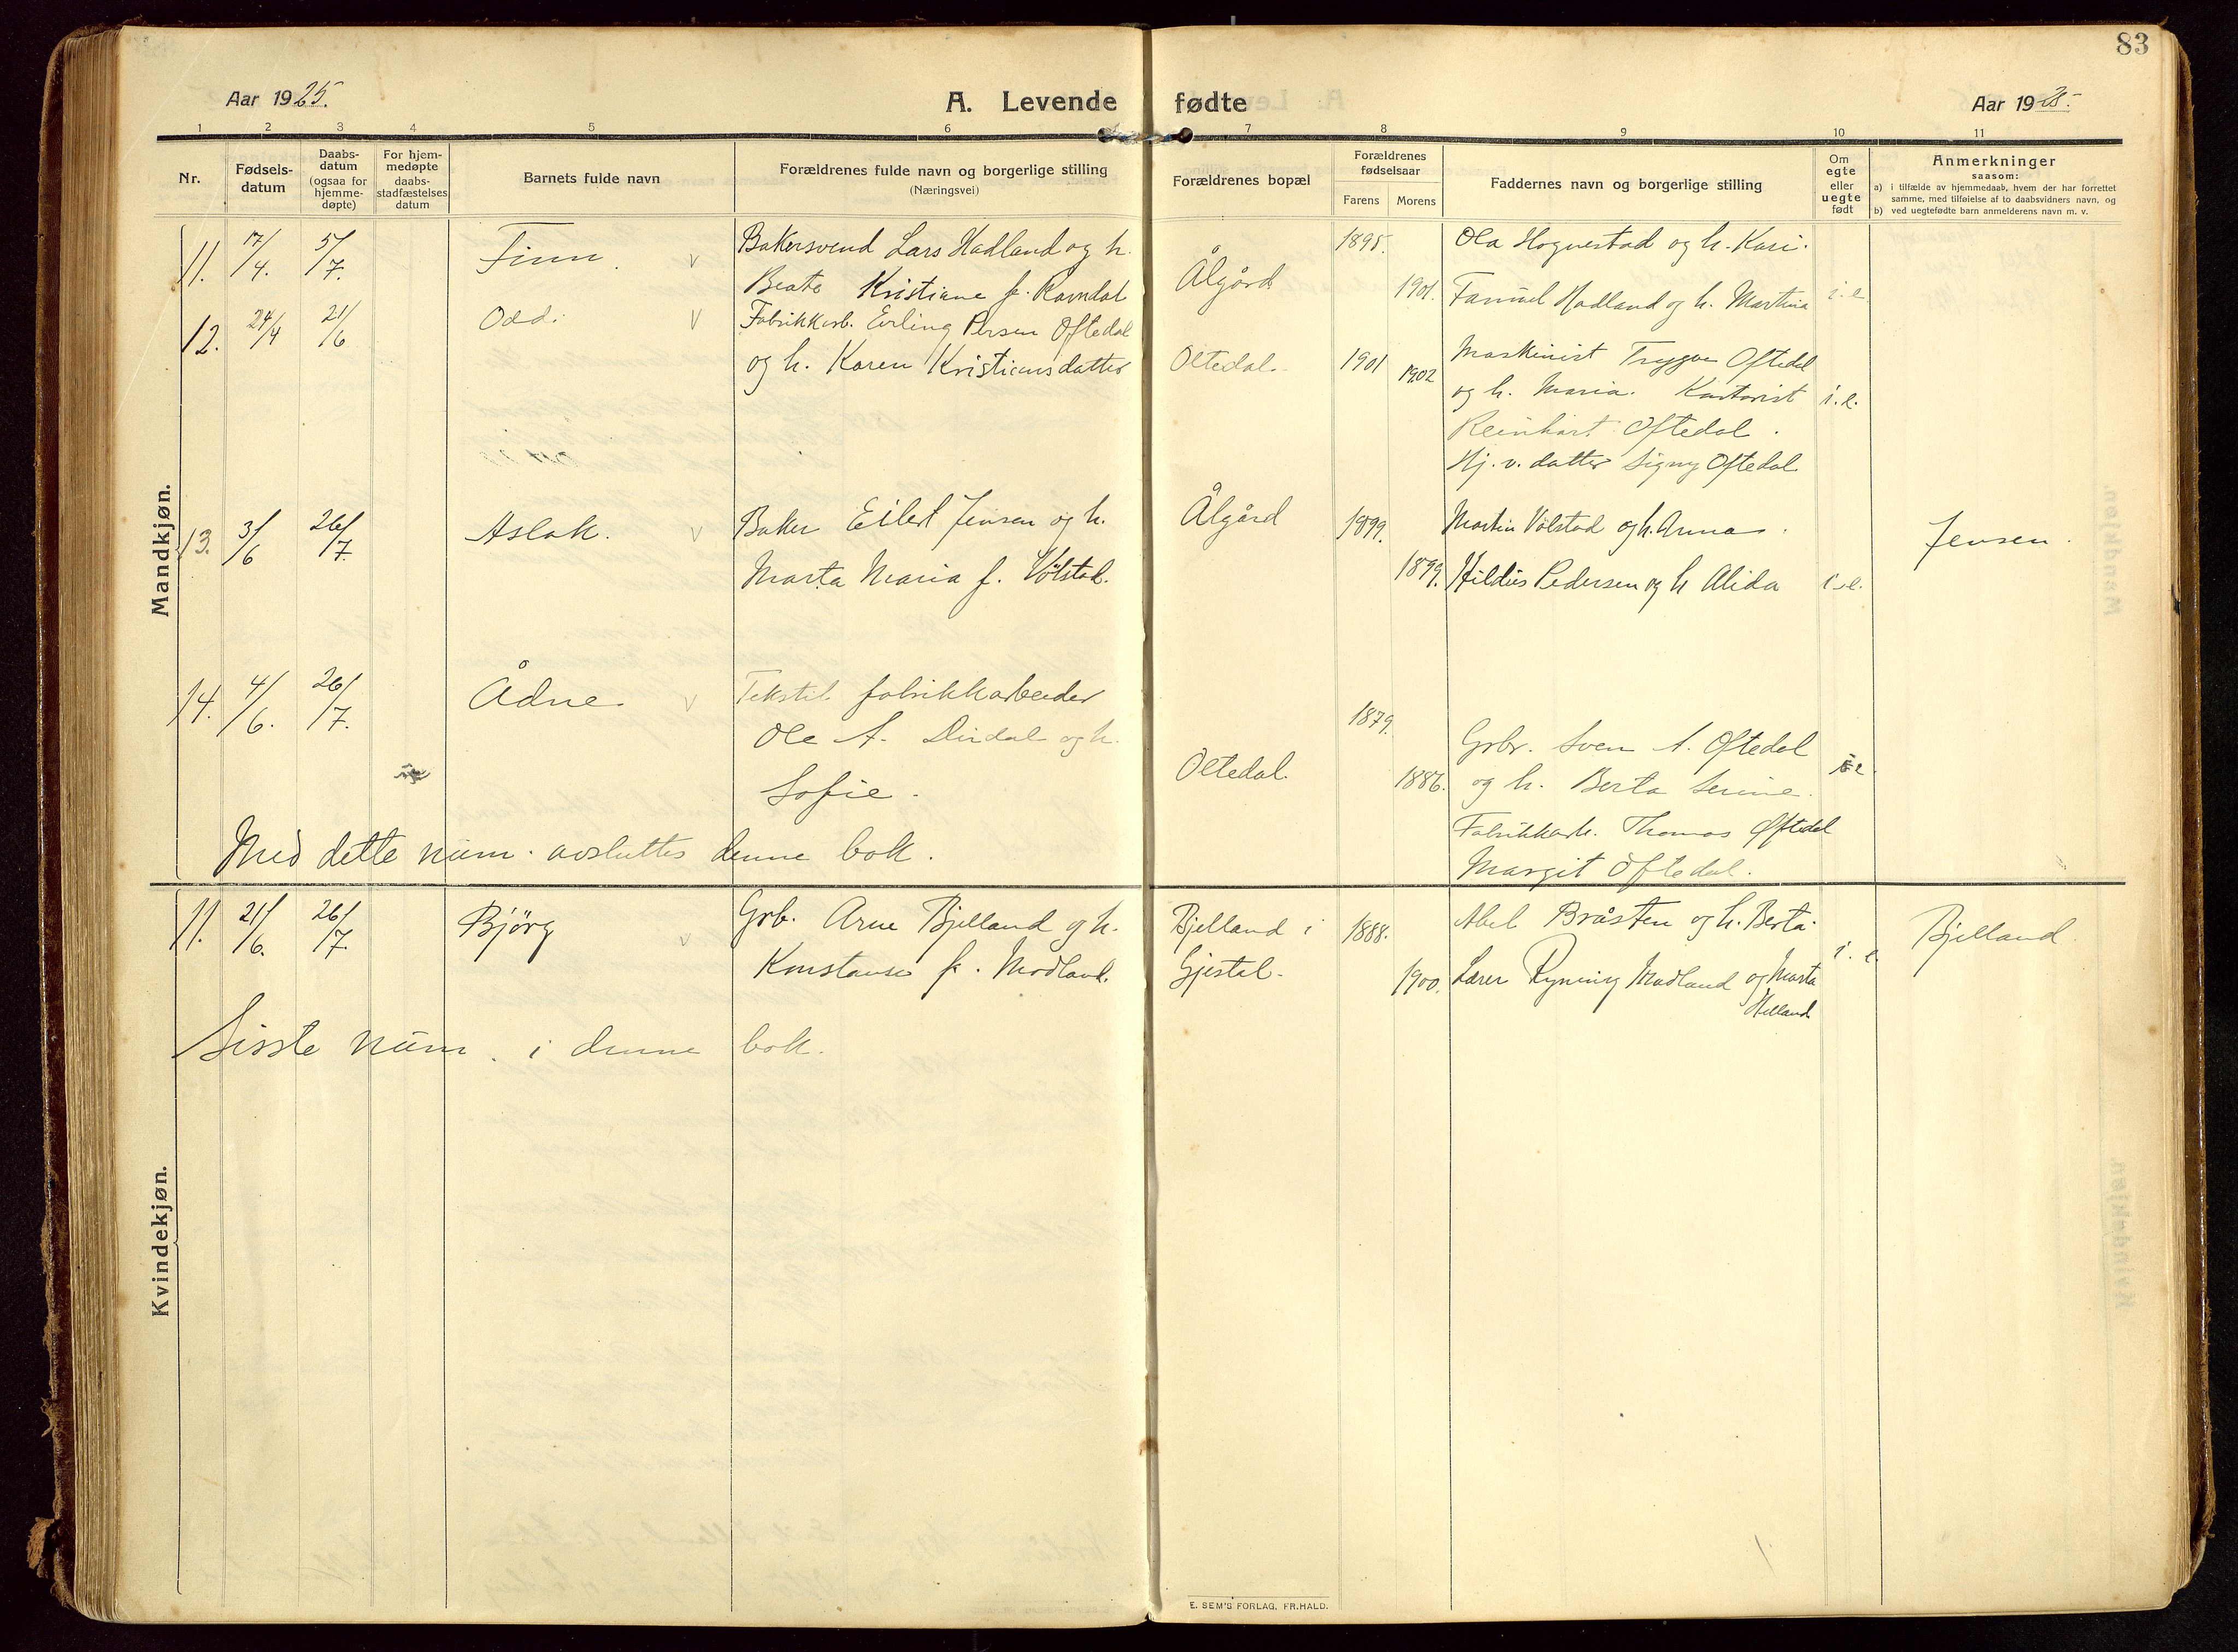 83
Aar 1925.
A. Levende fødte
Aar 1925.
1 2 3 4 5 6 7 8 9 10 11
Nr.
Fødsels-
datum
Daabs-
datum
(ogsaa for
hjemme-
døpte)
For hjem-
medøpte
daabs-
stadfæstelses
datum
Barnets fulde navn
Forældrenes fulde navn og borgerlige stilling
(Næringsvei)
Forældrenes bopæl
Forældrenes
fødselsaar
Farens Morens
Faddernes navn og borgerlige stilling
Om
egte
eller
uegte
født
Anmerkninger
saasom:
a) i tilfælde av hjemmedaab, hvem der har forrettet
samme, med tilføielse af to daabsvidners navn, og
b) ved uegtefødte barn anmelderens navn m. v.
Mandkjøn.
11. 17/4. 5/7. Finn. v
Bakersvend Lars Hadland og h.
Beate Kristiane f. Ravndal
Ålgård
1895.
1901.
Ola Hognestad og h. Kari.
Hadland og h. Martina
i. e.
12. 24/4 21/6 Odd. v
Fabrikkarb. Erling Persen Oftedal
og h. Karen Kristiansdatter
Oltedal.
1901 1902
Maskinist Trygve Oftedal
og h. Maria. Kontorist
Reinhart Oftedal.
Hj. v. datter Signy Oftedal
i. e.
13. 3/6 26/7. Aslak. v
Baker Eilert Jensen og h.
Marta Maria f. Vølstad.
Ålgård
1899.
1899.
Martin Vølstad og h. Anna.
Hildus Pedersen og h Alida
i. e.
Jensen.
14. 4/6. 26/7. Ådne. v
Tekstil fabrikkarbeider
Ole A. Dirdal og h.
Sofie.
Oltedal.
1879.
1886.
Grbr. Sven A. Oftedal
og h. Berta Serine.
Fabrikkarb. Thomas Oftedal
Margit Oftedal.
i e.
Med dette num. avsluttes denne bok.
Kvindekjøn.
11. 21/6. 26/7. Bjørg v
Grb. Arne Bjelland og h.
Konstanse f. Modland.
Bjelland i
Gjestal.
1888.
1900.
Abel Bråsten og h. Berta.
Lærer Ryning Madland og Marta
Helland
i. e.
Bjelland.
Sisste num. i denne bok.
E. SEM'S FORLAG, FR.HALD.